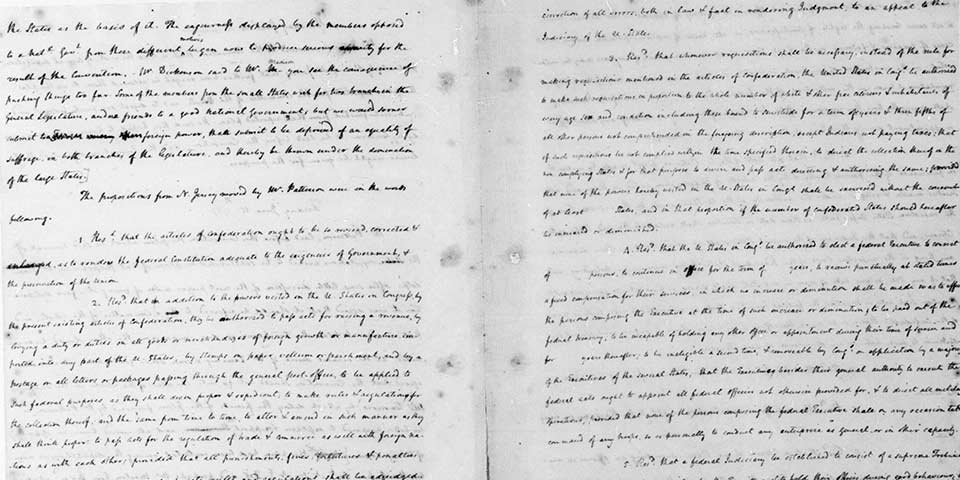 the States as the basis of it. The eagerness displayed by the members opposed
to a Natl. Govt. from these different motives began now to produce serious anxiety for the
result of the Convention. Mr. Dickenson said to Mr. Madison you see the consequence of
pushing things too far. Some of the members from the small States wish for two branches in the
General Legislature, and are friends to a good National Government; but we would sooner
submit to foreign power, than submit to be deprived of an equality of
suffrage, in both branches of the legislature, and thereby be thrown under the domination
of the large States.
The propositions from N. Jersey moved by Mr. Patterson were in the words
following.
1. Resd. that the articles of Confederation ought to be so revised, corrected &
enlarged, as to render the federal Constitution adequate to the exigencies of Government, &
the preservation of the Union.
2. Resd. that in addition to the powers vested in the U. States in Congress, by
the present existing articles of Confederation, they be authorized to pass acts for raising a revenue, by
levying a duty or duties on all goods or merchandizes of foreign growth or manufacture, im-
ported into any part of the U. States, by Stamps on paper, vellum or parchment, and by a
postage on all letters or packages passing through the general post-office, to be applied to
such federal purposes as they shall deem proper & expedient; to make rules & regulations for
the collection thereof; and the same from time to time, to alter & amend in such manner as they
shall think proper: to pass Acts for the regulation of trade & commerce as well with foreign na-
tions as with each other; provided that all punishments, fines, forfeitures & penalties
rules and regulations shall be adjudged
correction of all errors, both in law & fact in rendering Judgment, to an appeal to the
Judiciary of the U. States.
3. Resd. that whenever requisitions shall be necessary, instead of the rule for
making requisitions mentioned in the articles of Confederation, the United States in Congs. be authorized
to make such requisitions in proportion to the whole number of white & other free citizens & inhabitants of
every age sex and condition including those bound to servitude for a term of years & three fifths of
all other persons not comprehended in the foregoing description, except Indians not paying taxes; that
if such requisitions be not complied with, in the time specified therein, to direct the collection thereof in the
non complying States & for that purpose to devise and pass acts directing & authorizing the same; provided
that none of the powers hereby vested in the U. States in Congs. shall be exercised without the consent
of at least States, and in that proportion if the number of Confederated States should hereafter
be increased or diminished.
4. Resd. that the U. States in Congs. be authorized to elect a federal Executive to consist
of persons, to continue in office for the term of years, to receive punctually at stated times
a fixed compensation for their services, in which no increase or diminution shall be made so as to affect
the persons composing the Executive at the time of such increase or diminution, to be paid out of the
federal treasury; to be incapable of holding any other office or appointment during their time of service and
for years thereafter; to be ineligible a second time, & removeable by Congs. on application by a majority
of the Executives of the several States; that the Executives besides their general authority to execute the
federal acts ought to appoint all federal officers not otherwise provided for, & to direct all military
operations; provided that none of the persons composing the federal Executive shall on any occasion take
command of any troops, so as personally to conduct any enterprise as General, or in other capacity.
5. Resd. that a federal Judiciary be established to consist of a supreme Tribunal
hold their Offices during good behaviour,